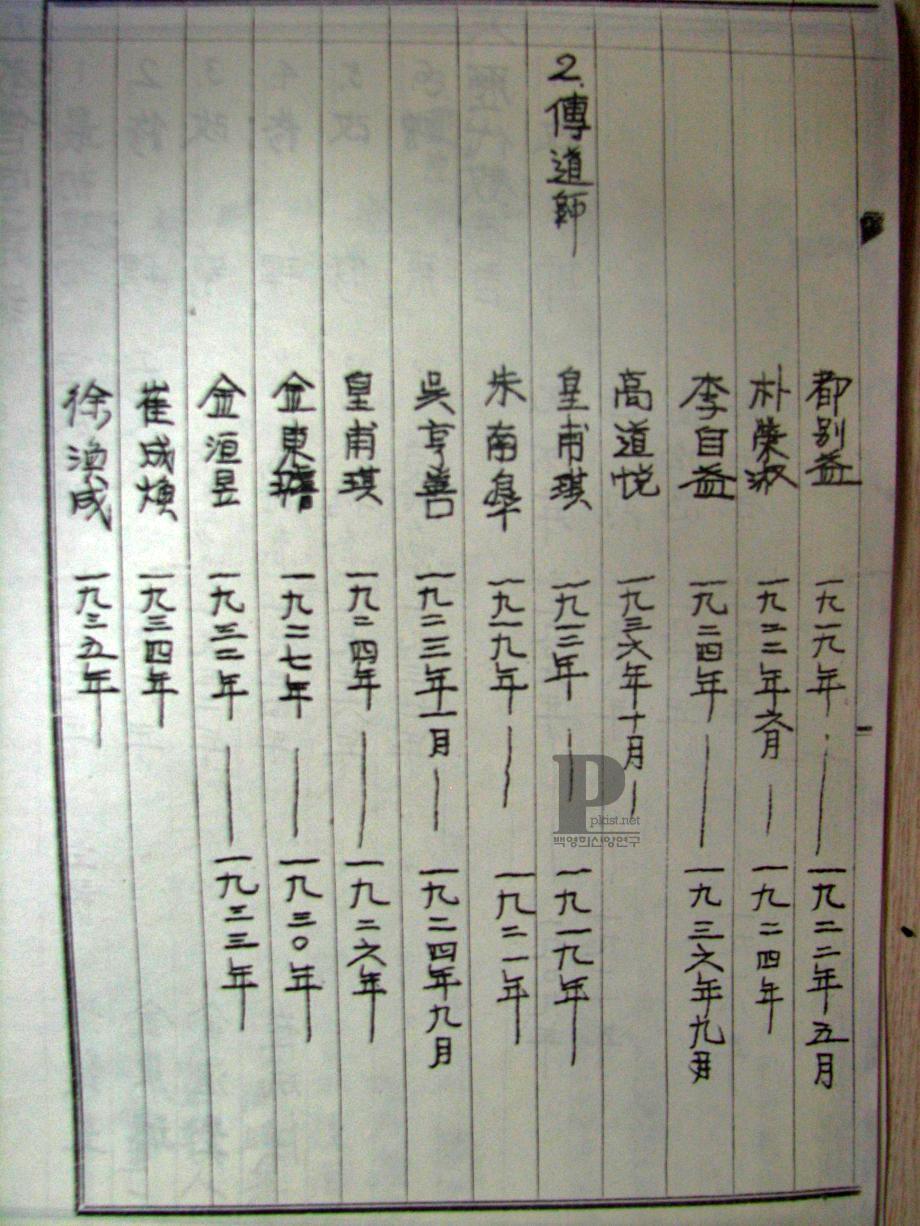 都別益 一九一九年 — 一九二二年五月
朴榮淑 一九二二年六月 — 一九二四年
李自益 一九二四年 — 一九三六年九月
高道悅 一九三六年十月 —
2. 傳道師 皇甫琪 一九一三年 — 一九一九年
朱南皐 一九一九年 — 一九二一年
吳亨善 一九二三年一月 — 一九二四年九月
皇甫琪 一九二四年 — 一九二六年
金東 一九二七年 — 一九三〇年
金洹昱 一九三二年 — 一九三三年
崔成煥 一九三四年
徐渙成 一九三五年 —
P
pkist.net
백영희신앙연구